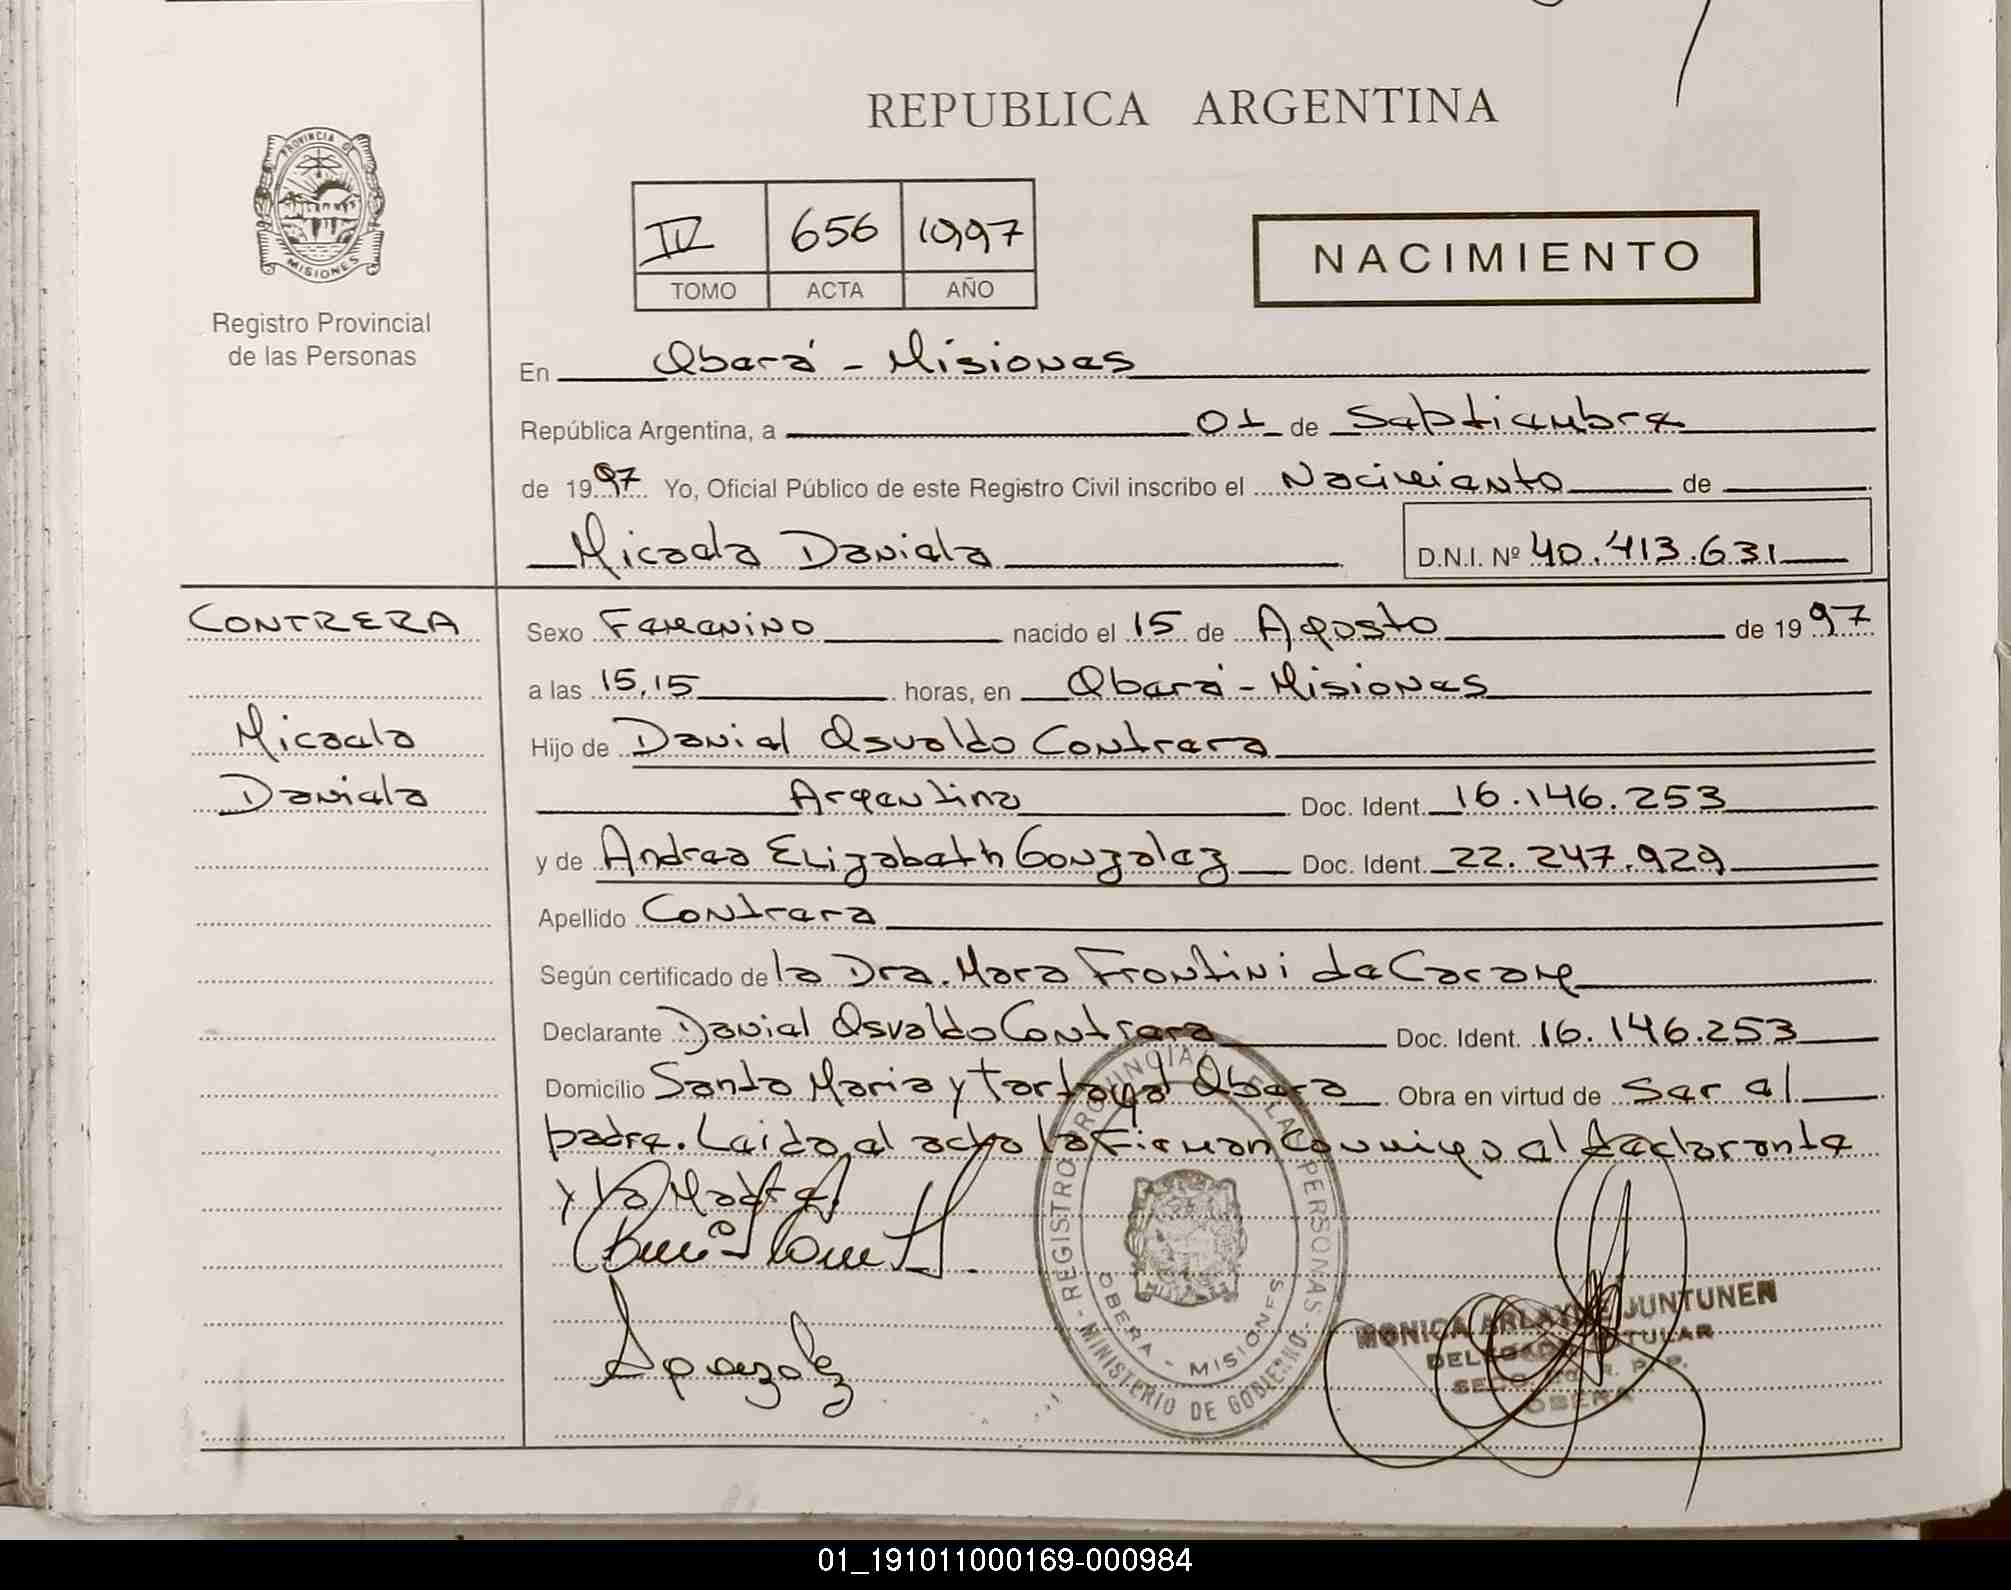 REPUBLICA ARGENTINA
PROVINCIA DE
MISIONES
Registro Provincial
de las Personas
IV 656 1997
TOMO ACTA AÑO
NACIMIENTO
En Oberá - Misiones
República Argentina, a 01 de Septiembre
de 1997 Yo, Oficial Público de este Registro Civil inscribo el Nacimiento de
Micaela Daniela D.N.I. Nº 40.413.631
CONTRERA
Micaela
Daniela
Sexo Femenino nacido el 15 de Agosto de 1997
a las 15,15 horas, en Oberá - Misiones
Hijo de Daniel Osvaldo Contrera
Argentina Doc. Ident. 16.146.253
y de Andrea Elizabeth Gonzalez Doc. Ident. 22.247.929
Apellido Contrera
Según certificado de la Dra. Mara Frontini de
Declarante Daniel Osvaldo Contrera Doc. Ident. 16.146.253
Domicilio Santa Maria y Tartagal Obera Obra en virtud de ser el
padre. Leida el acta la Firman conmigo el declarante
y la Madre.
REGISTRO PROVINCIAL DE LAS PERSONAS - MINISTERIO DE GOBIERNO -
OBERA - MISIONES
MONICA JUNTUNEN
DELEGADA TITULAR
SECC. R. P. P.
OBERA
01_191011000169-000984